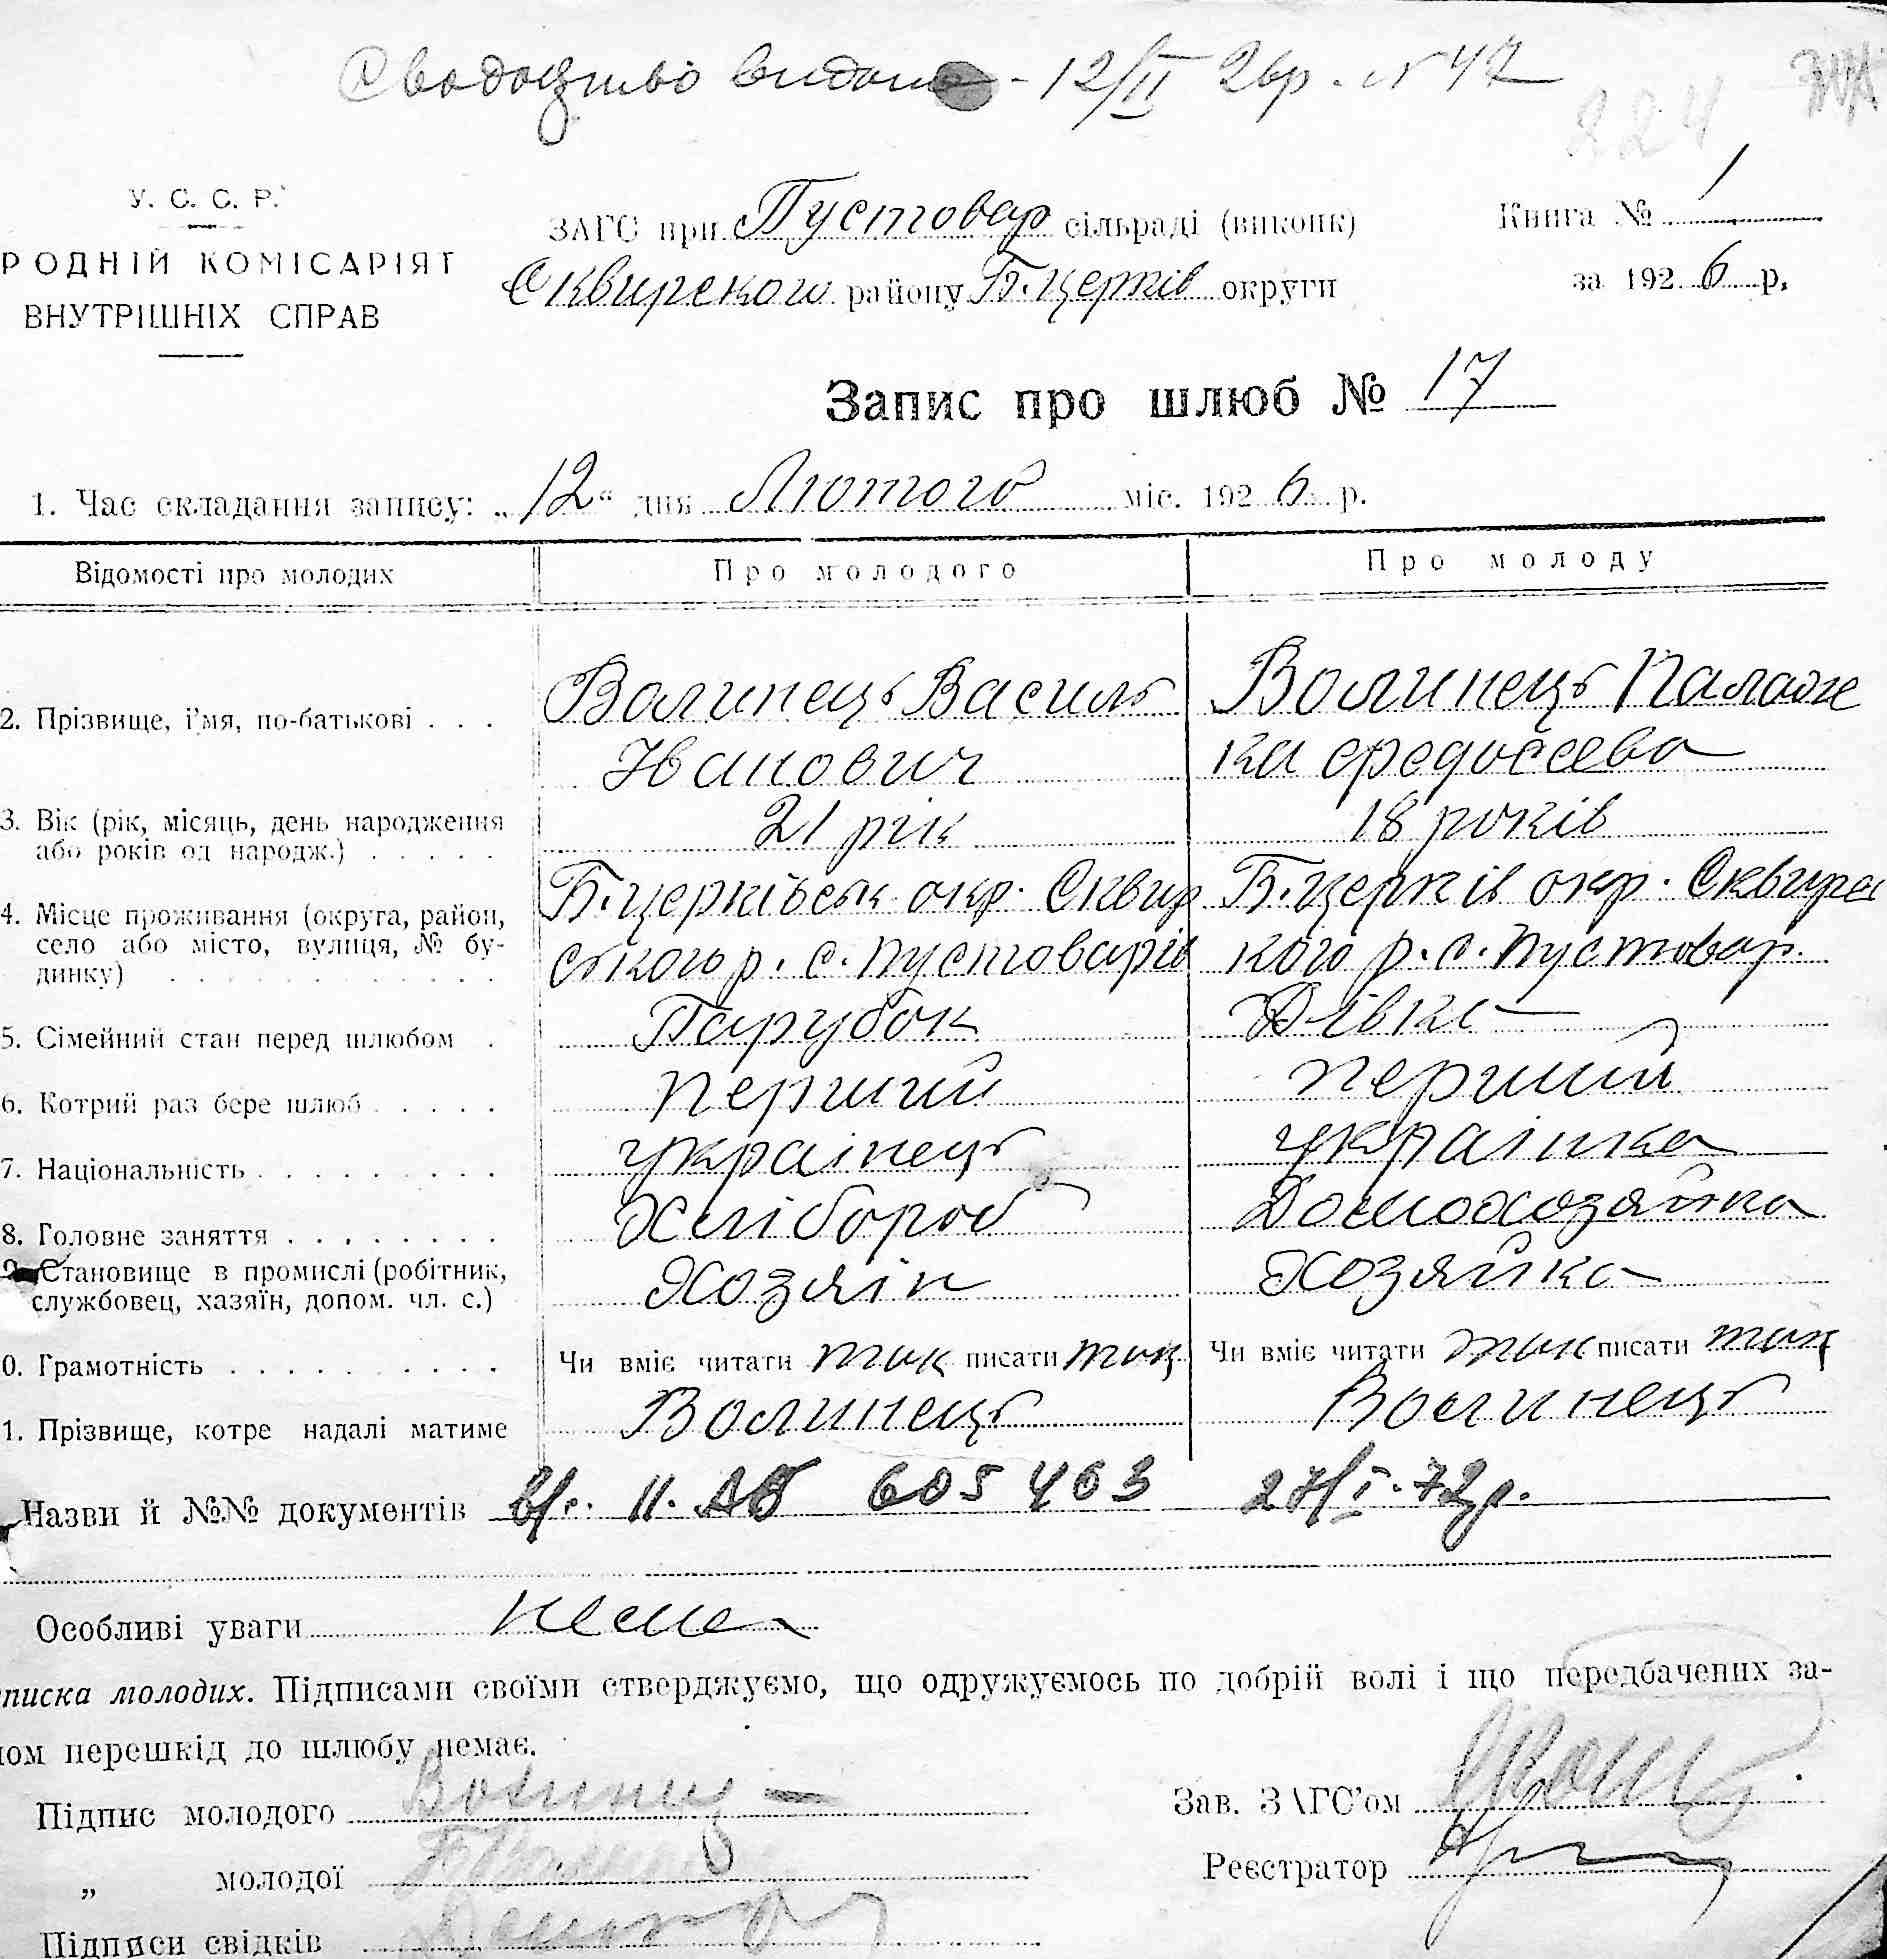 Свадоцтво видано - 12/II 26р. N 47
224
У. С. С. Р.
РОДНІЙ КОМІСАРІЯТ
ВНУТРІШНІХ СПРАВ
ЗАГС при Пустовар сільраді (виконк)
Сквирского району Б.церків округи
Книга № 1
за 1926 р.
Запис про шлюб № 17
1. Час складання запису: „12“ дня Лютого міс. 1926 р.
Відомості про молодих Про молодого Про молоду
2. Прізвище, і'мя, по-батькові . . . Волинець Василь Волинець Палаж
Іванович ка Федосеева
3. Вік (рік, місяць, день народження
або років од народж.) . . . . . 21 рік 18 років
4. Місце проживання (округа, район, Б.церківськ окр. Сквир Б.церків окр. Сквирс
село або місто, вулиця, № бу- ського р. с. Пустоварів кого р. с. Пустовар.
динку) . . . . . . . . . . . .
5. Сімейний стан перед шлюбом . Парубок Дівка
6. Котрий раз бере шлюб . . . . . Перший Перший
7. Національність . . . . . . . . . українець українка
8. Головне заняття . . . . . . . . Хлібороб Домохозяйка
9. Становище в промислі (робітник,
службовец, хазяїн, допом. чл. с.) Хозяін Хозяйка
0. Грамотність . . . . . . . . . . Чи вміє читати так писати так Чи вміє читати так писати так
1. Прізвище, котре надалі матиме Волинець Волинець
Назви й №№ документів II. АЮ 605463 27/I.72р.
Особливі уваги нема
писка молодих. Підписами своїми стверджуємо, що одружуємось по добрій волі і що передбачених за-
ом перешкід до шлюбу немає.
Підпис молодого Волинец
Зав. ЗАГС'ом
„ молодої
Реєстратор
Підписи свідків